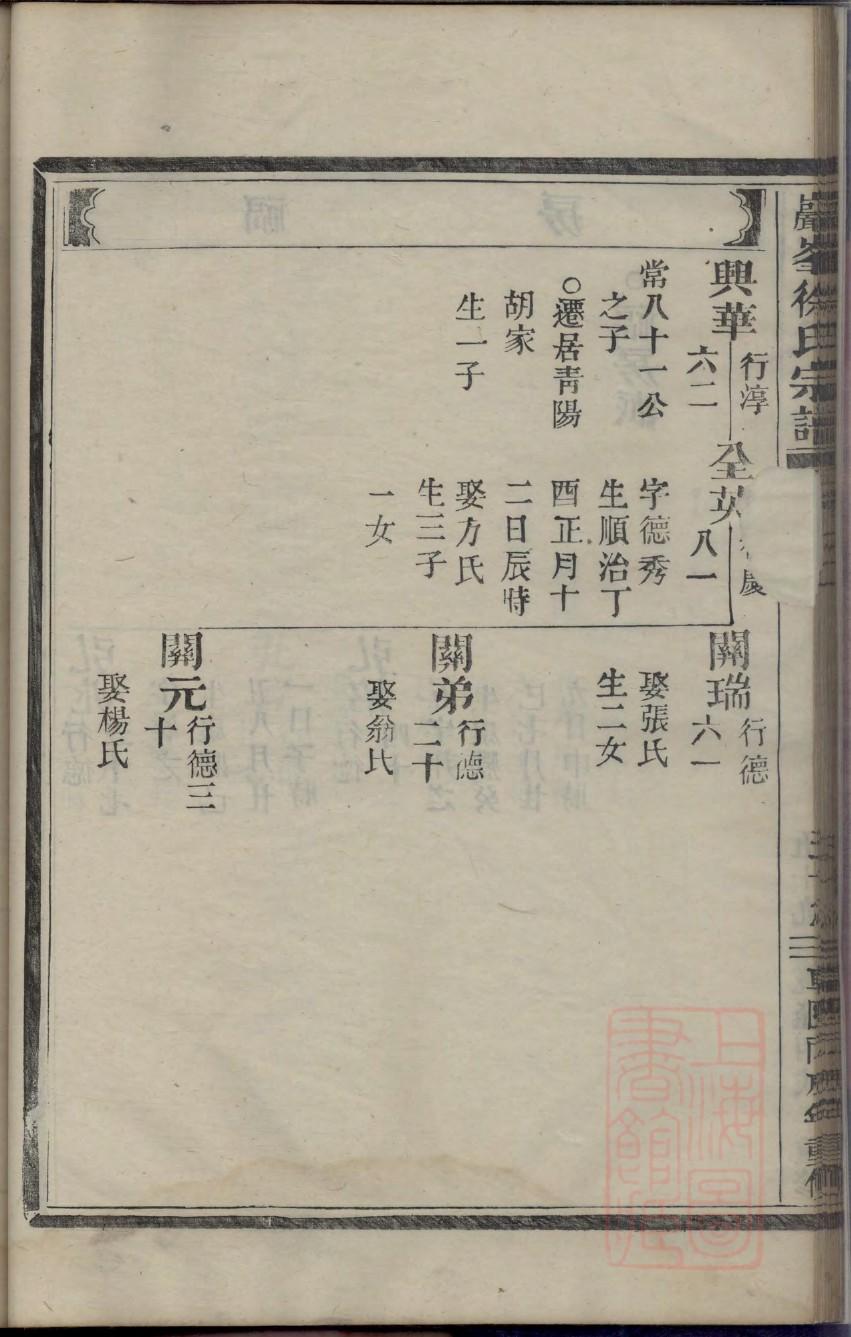 徐氏宗譜
興華
行淳
六二
常八十一公
之子
○遷居青陽
胡家
生一子
全英
八一
字德秀
生順治丁
酉正月十
二日辰時
娶方氏
生三子
一女
關瑞
行德
六一
娶張氏
生二女
關弟
行德
二十
娶翁氏
關元
行德三
十
娶楊氏
上海圖
書館藏